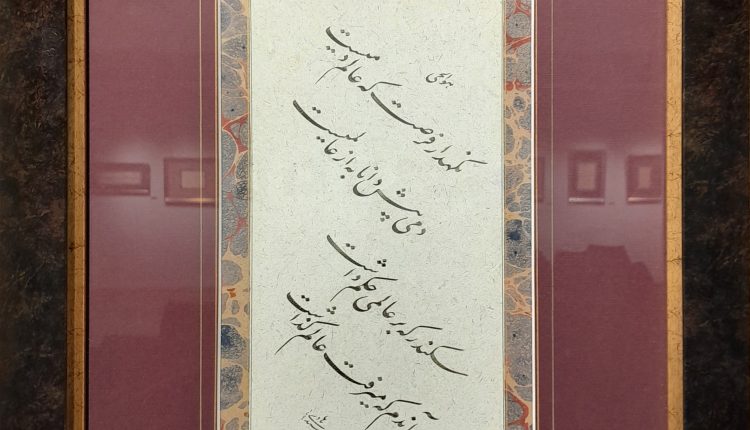 هوالحی
نگهدار فرصت که عالم دمیست
دمی پیش دانا به از عالمیست
سکندر که بر عالمی حکم داشت
در آندم که میرفت عالم گذاشت